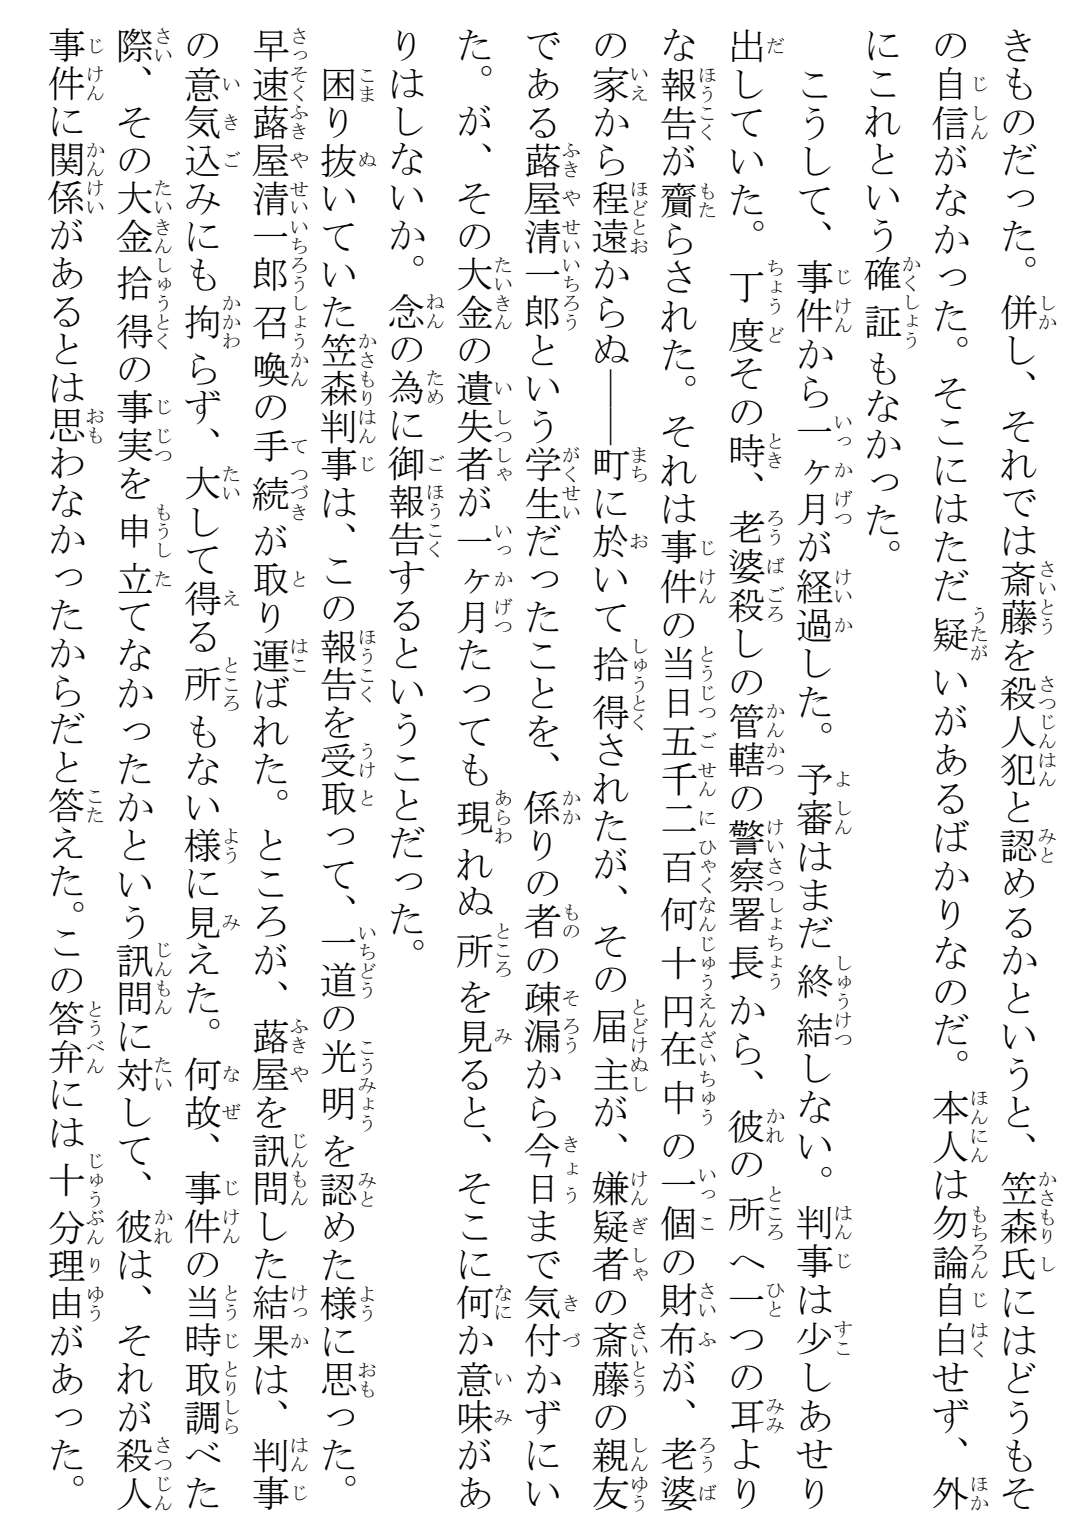 きものだった。併し、それでは斎藤を殺人犯と認めるかというと、笠森氏にはどうもそ
の自信がなかった。そこにはただ疑いがあるばかりなのだ。本人は勿論自白せず、外
にこれという確証もなかった。
　こうして、事件から一ヶ月が経過した。予審はまだ終結しない。判事は少しあせり
出していた。丁度その時、老婆殺しの管轄の警察署長から、彼の所へ一つの耳より
な報告が齎らされた。それは事件の当日五千二百何十円在中の一個の財布が、老婆
の家から程遠からぬ――町に於いて拾得されたが、その届主が、嫌疑者の斎藤の親友
である蕗屋清一郎という学生だったことを、係りの者の疎漏から今日まで気付かずにい
た。が、その大金の遺失者が一ヶ月たっても現れぬ所を見ると、そこに何か意味があ
りはしないか。念の為に御報告するということだった。
　困り抜いていた笠森判事は、この報告を受取って、一道の光明を認めた様に思った。
早速蕗屋清一郎召喚の手続が取り運ばれた。ところが、蕗屋を訊問した結果は、判事
の意気込みにも拘らず、大して得る所もない様に見えた。何故、事件の当時取調べた
際、その大金拾得の事実を申立てなかったかという訊問に対して、彼は、それが殺人
事件に関係があるとは思わなかったからだと答えた。この答弁には十分理由があった。